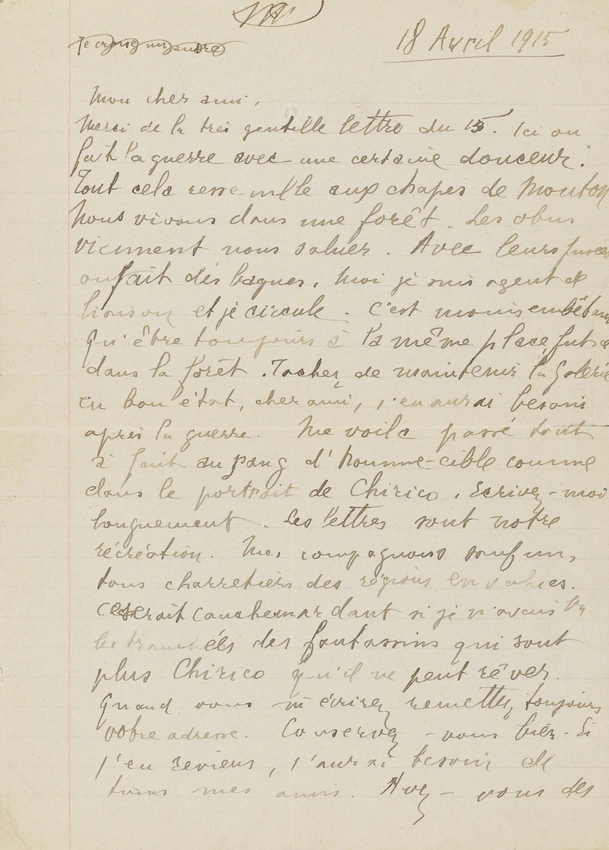 18 Avril 1915
Mon cher ami,
Merci de la très gentille lettre du 15. Ici on
fait la guerre avec une certaine douceur.
Tout cela ressemble aux chapes de Mouton
Nous vivons dans une forêt. Les obus
viennent nous saluer. Avec leurs fusées
on fait des bagues, moi je suis agent de
liaison et je circule. C'est moins embêtant
qu'être toujours à la même place fut-ce
dans la forêt. Tachez de maintenir la Galerie
en bon état, cher ami, j'en aurai besoin
après la guerre. Me voilà passé tout
à fait au rang d'homme-cible comme
dans le portrait de Chirico. Ecrivez-moi
longuement. Les lettres sont notre
récréation. Mes compagnons sauf un,
tous charretiers des régions envahies.
Ce serait cauchemardant si je n'avais vu
les tranchées des fantassins qui sont
plus Chirico qu'il ne peut rêver.
Quand vous m'écrirez remettez toujours
votre adresse. Conservez-vous bien. Si
j'en reviens, j'aurai besoin de
tous mes amis. Avez-vous des